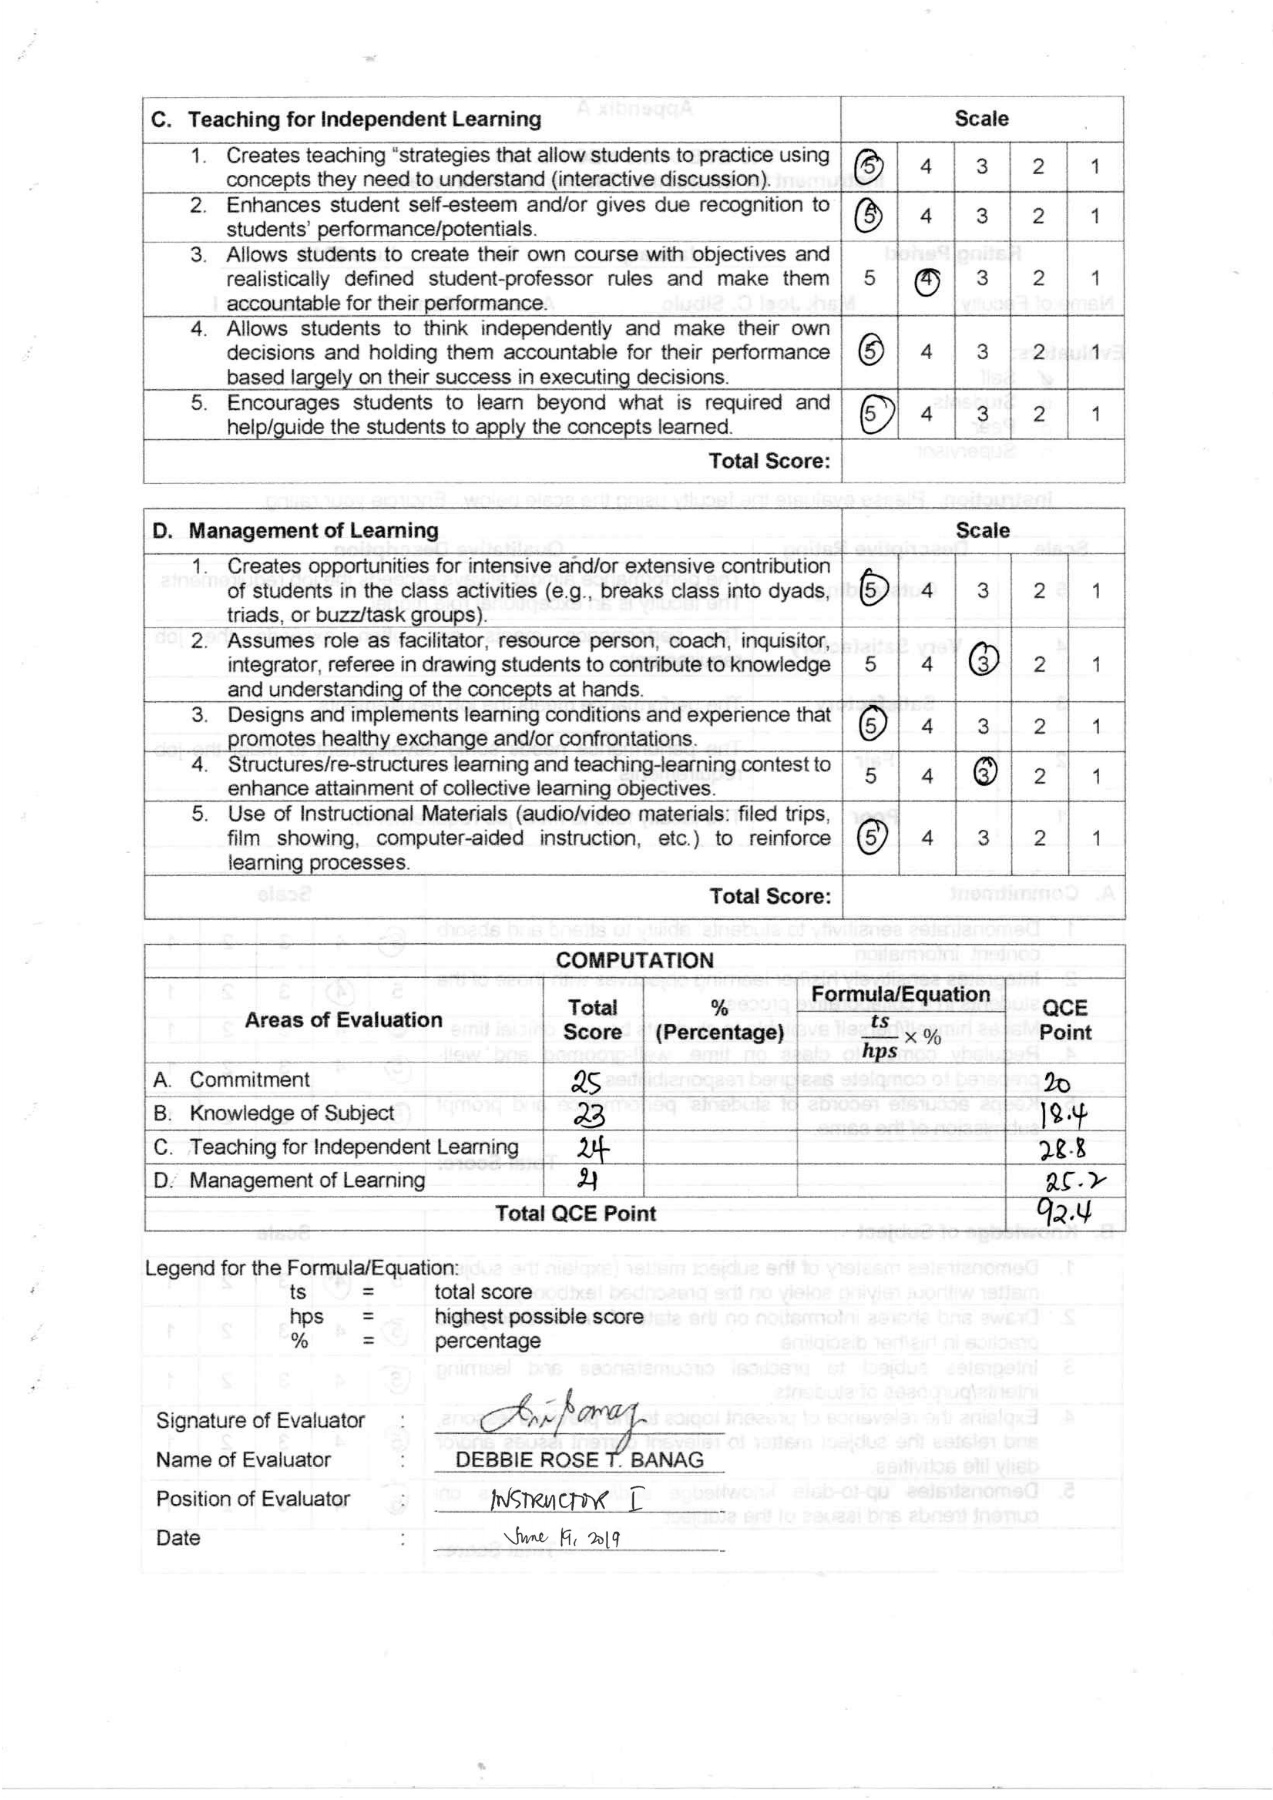 C. Teaching for Independent Learning Scale
1. Creates teaching "strategies that allow students to practice using 5 4 3 2 1
concepts they need to understand (interactive discussion).
2. Enhances student self-esteem and/or gives due recognition to 5 4 3 2 1
students' performance/potentials.
3. Allows students to create their own course with objectives and
realistically defined student-professor rules and make them 5 4 3 2 1
accountable for their performance.
4. Allows students to think independently and make their own
decisions and holding them accountable for their performance 5 4 3 2 1
based largely on their success in executing decisions.
5. Encourages students to learn beyond what is required and 5 4 3 2 1
help/guide the students to apply the concepts learned.
Total Score:
D. Management of Learning Scale
1. Creates opportunities for intensive and/or extensive contribution
of students in the class activities (e.g., breaks class into dyads, 5 4 3 2 1
triads, or buzz/task groups).
2. Assumes role as facilitator, resource person, coach, inquisitor,
integrator, referee in drawing students to contribute to knowledge 5 4 3 2 1
and understanding of the concepts at hands.
3. Designs and implements learning conditions and experience that 5 4 3 2 1
promotes healthy exchange and/or confrontations.
4. Structures/re-structures learning and teaching-learning contest to 5 4 3 2 1
enhance attainment of collective learning objectives.
5. Use of Instructional Materials (audio/video materials: filed trips,
film showing, computer-aided instruction, etc.) to reinforce 5 4 3 2 1
learning processes.
Total Score:
COMPUTATION
Areas of Evaluation Total Score % (Percentage) Formula/Equation ts/hps × % QCE Point
A. Commitment 25 20
B. Knowledge of Subject 23 18.4
C. Teaching for Independent Learning 24 28.8
D. Management of Learning 21 25.2
Total QCE Point 92.4
Legend for the Formula/Equation:
ts = total score
hps = highest possible score
% = percentage
Signature of Evaluator :
Name of Evaluator : DEBBIE ROSE T. BANAG
Position of Evaluator : INSTRUCTOR I
Date : June 19, 2019